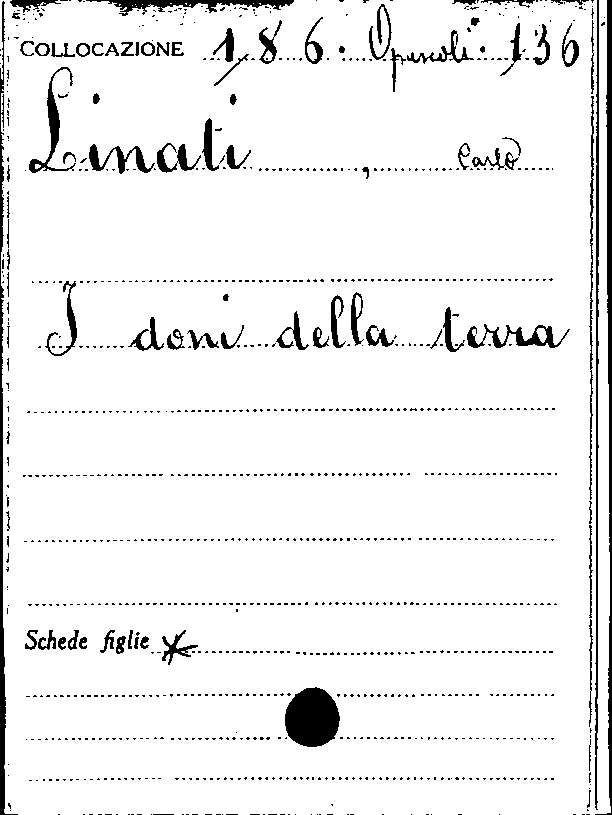 COLLOCAZIONE 186. Opuscoli. 136
Linati, Carlo
I doni della terra
Schede figlie